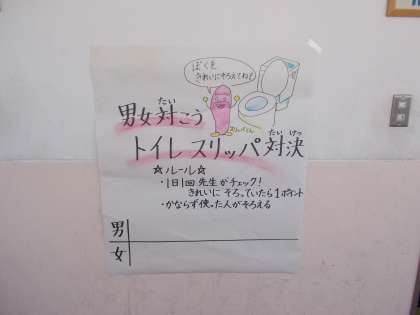 ぼくを
きれいにそろえてね!
すりっぱくん
男女対こう
たい
トイレスリッパ対決
たいけつ
☆ルール☆
・1日1回先生がチェック!
きれいにそろっていたら1ポイント
・かならず使った人がそろえる
男
女